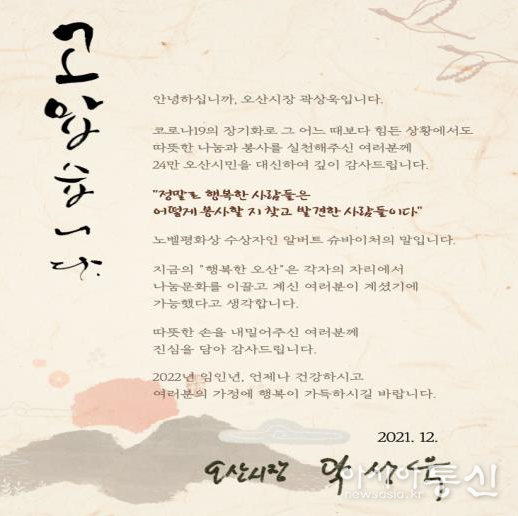 고맙습니다.
안녕하십니까, 오산시장 곽상욱입니다.
코로나19의 장기화로 그 어느 때보다 힘든 상황에서도
따뜻한 나눔과 봉사를 실천해주신 여러분께
24만 오산시민을 대신하여 깊이 감사드립니다.
"정말로 행복한 사람들은
어떻게 봉사할 지 찾고 발견한 사람들이다."
노벨평화상 수상자인 알버트 슈바이처의 말입니다.
지금의 "행복한 오산"은 각자의 자리에서
나눔문화를 이끌고 계신 여러분이 계셨기에
가능했다고 생각합니다.
따뜻한 손을 내밀어주신 여러분께
진심을 담아 감사드립니다.
2022년 임인년, 언제나 건강하시고
여러분의 가정에 행복이 가득하시길 바랍니다.
2021. 12.
오산시장 곽상욱
아시아통신
newsasia.kr